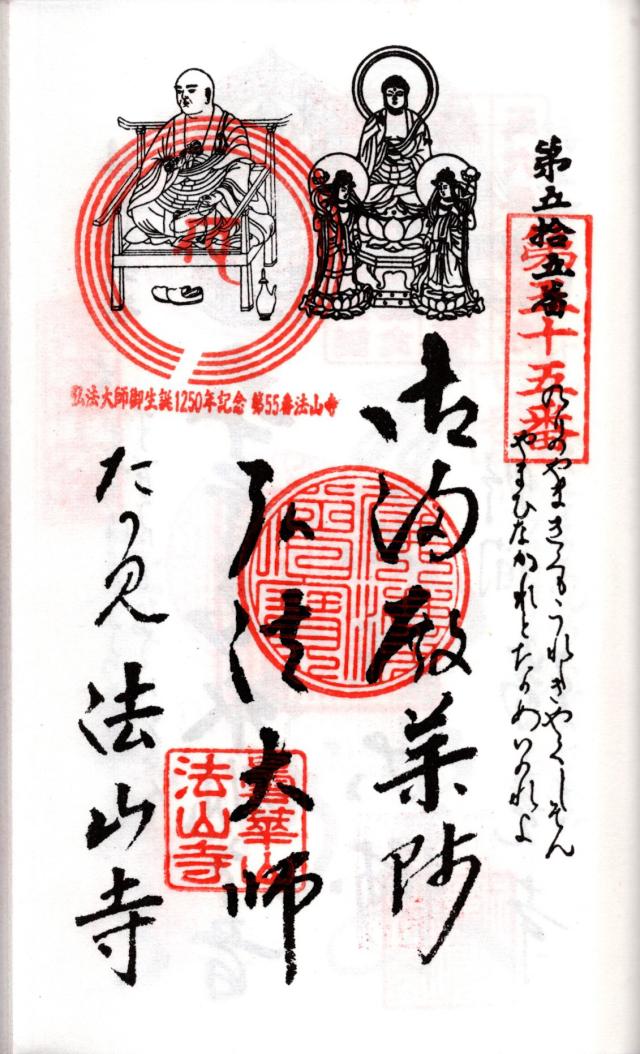 第五拾五番
第五十五番
のりのやまきくもうれしきやくしそん
やまひなかれとたのめいのれよ
御満殿薬師
弘法大師
たつ見 法山寺
曇華山
法山寺
弘法大師御生誕1250年記念 第55番法山寺